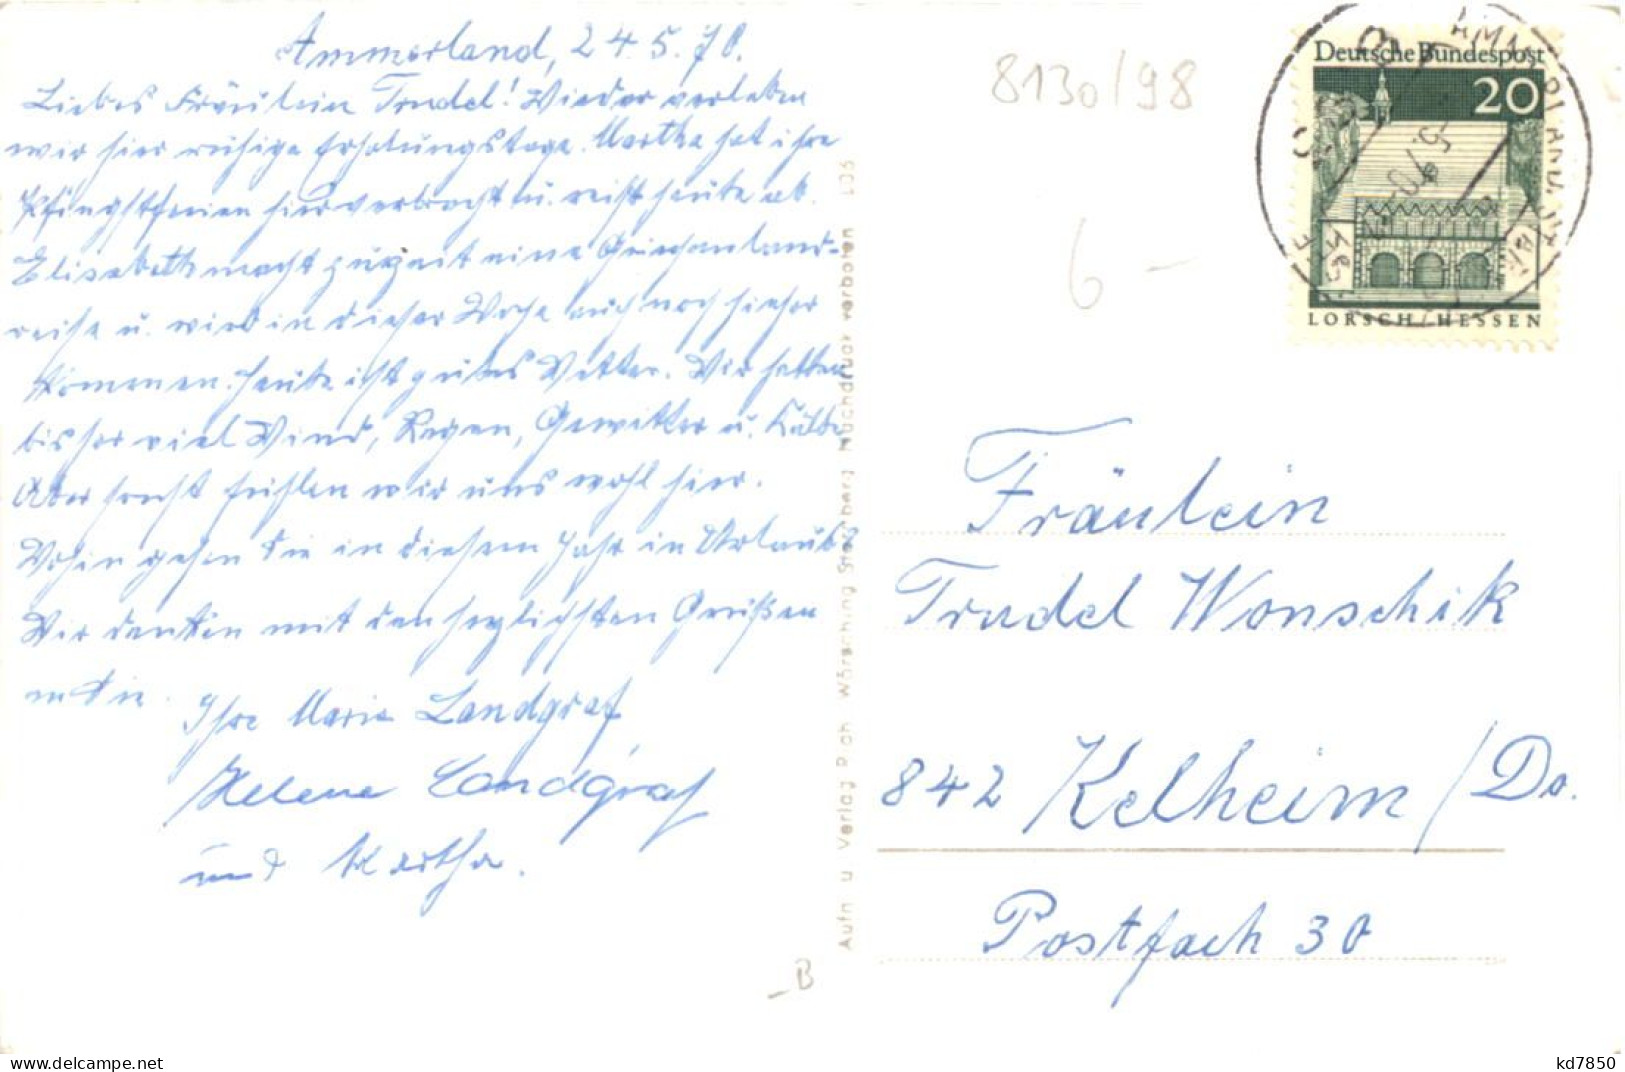 Ammerland, 24.5.70.
Liebes Fräulein Trudel! Wieder verleben
wir hier ruhige Erholungstage. Martha hat ihre
Pfingstferien hier verbracht u. reist heute ab.
Elisabeth macht zurzeit eine Griechenland-
reise u. wird in dieser Woche auch noch hieher
kommen. Heute ist gutes Wetter. Wir hatten
bisher viel Wind, Regen, Gewitter u. Kälte.
Aber sonst fühlen wir uns wohl hier.
Wohin gehen Sie in diesem Jahr in Urlaub?
Wir denken mit den herzlichsten Grüßen
an Sie.
Ihre Maria Landgraf,
Helene Landgraf
und Martha.
Aufn u Verlag Rich Wörsching Starnberg Nachdruck verboten L05
8130/98
6 -
- B
Deutsche Bundespost
20
LORSCH/HESSEN
AMMERLAND
Fräulein
Trudel Wonschik
842 Kelheim/Do.
Postfach 30
www.delcampe.net
kd7850